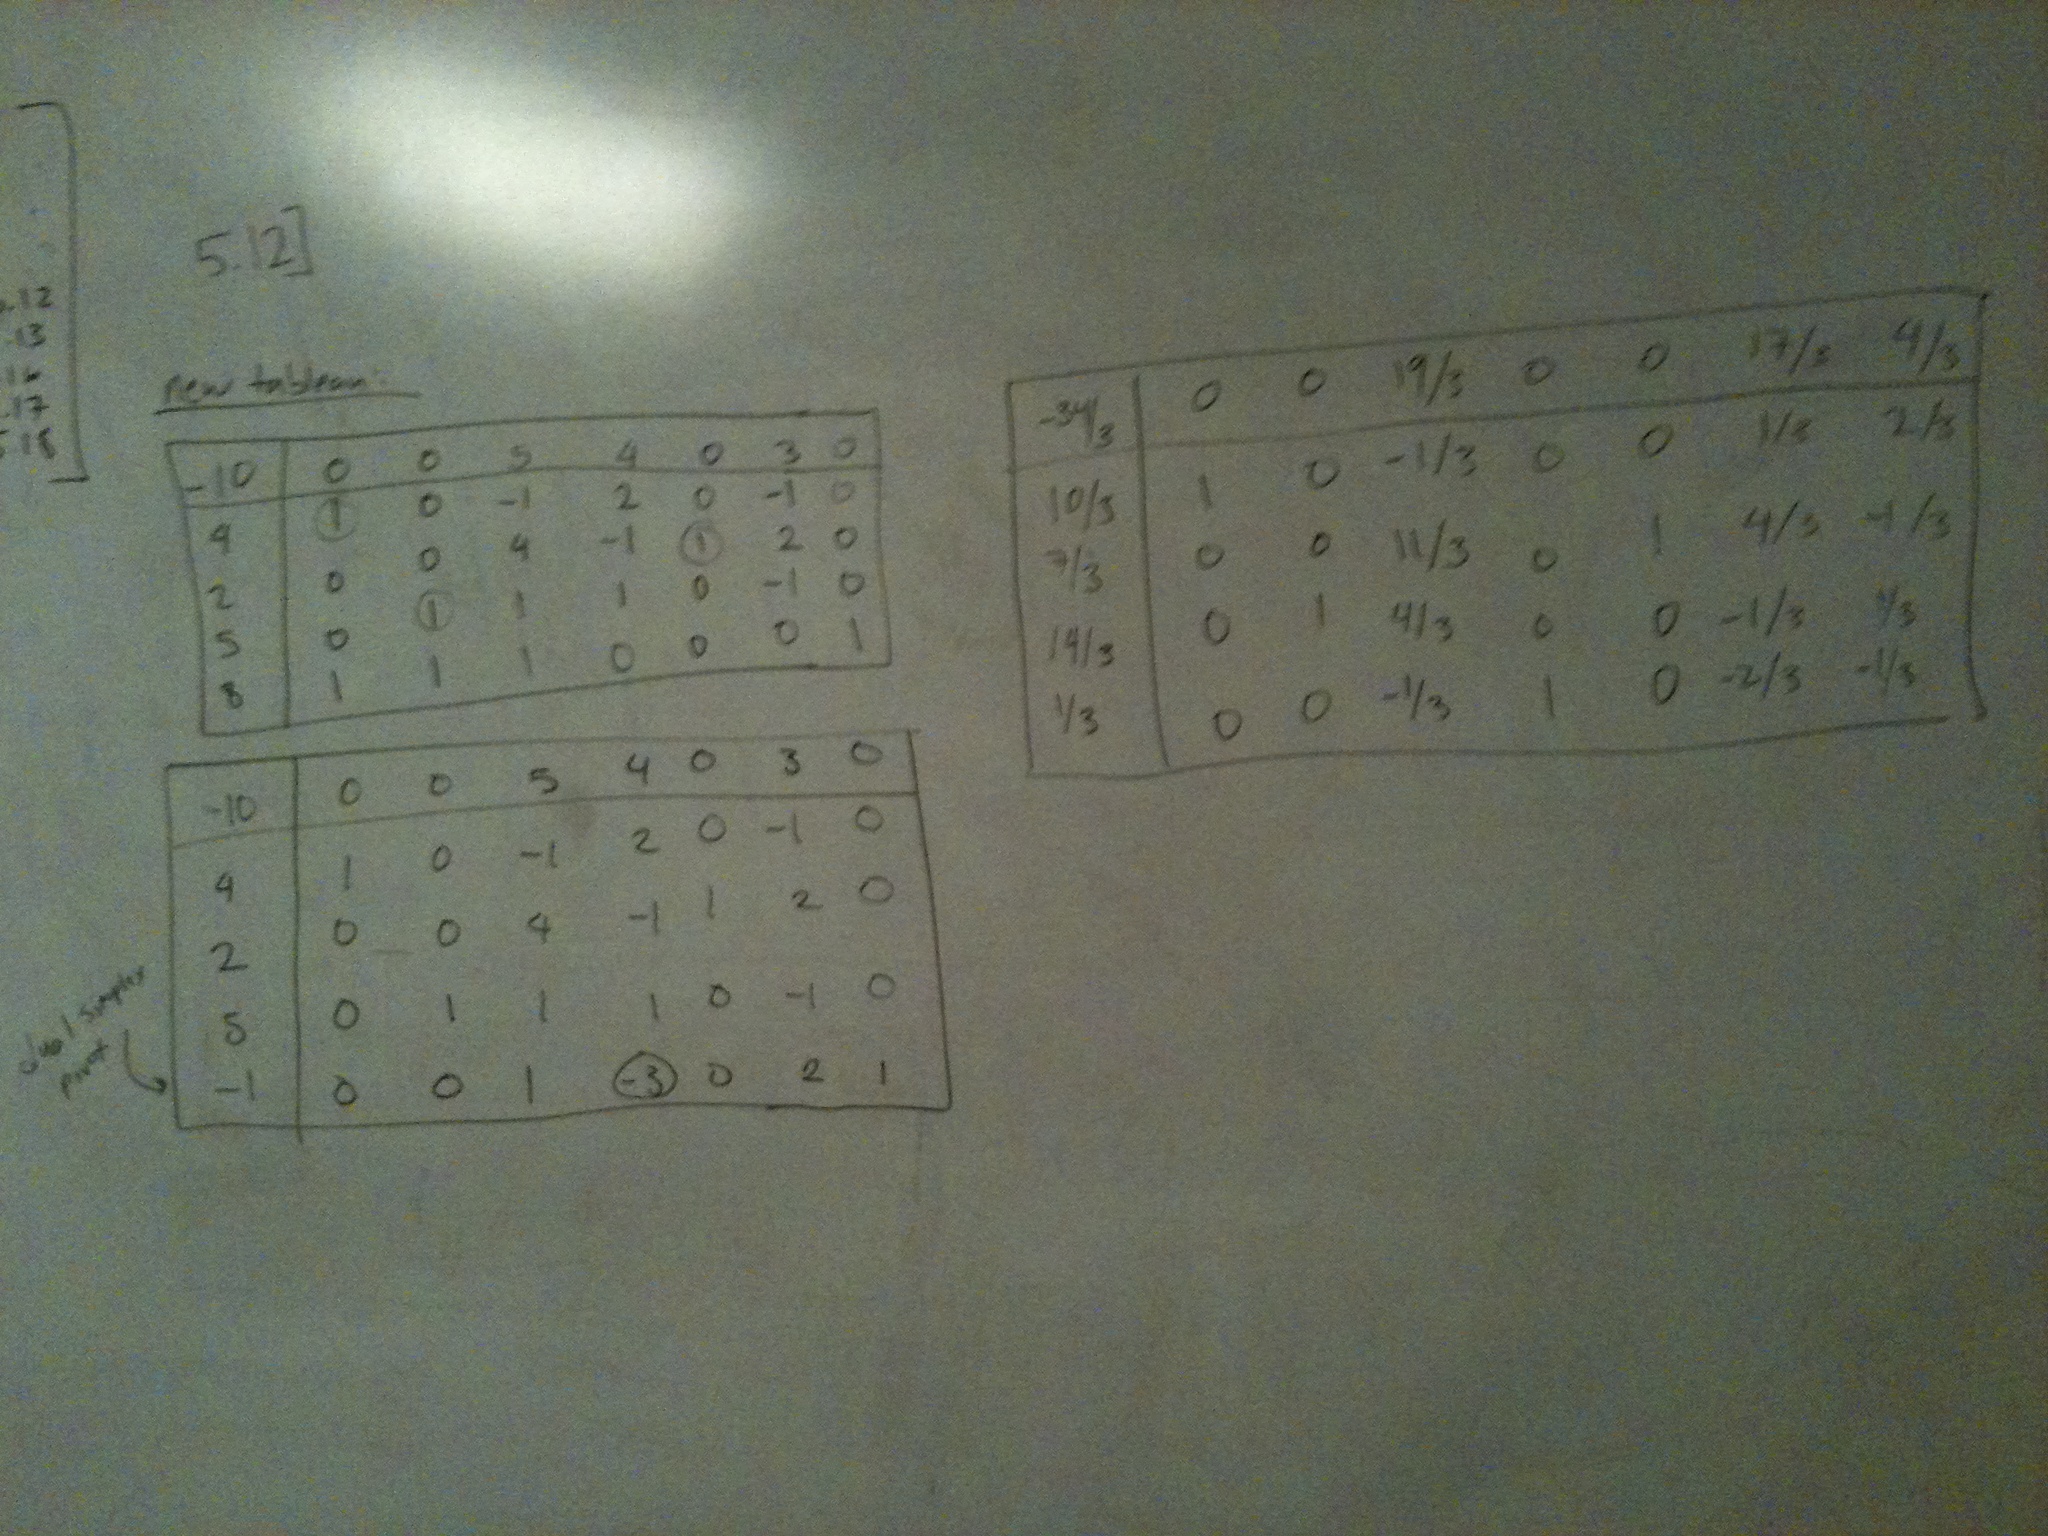 5.12]
.12
.13
.16
.17
5.18
new tableau:
-10 0 0 5 4 0 3 0
4 1 0 -1 2 0 -1 0
2 0 0 4 -1 1 2 0
5 0 1 1 1 0 -1 0
8 1 1 1 0 0 0 1
-10 0 0 5 4 0 3 0
4 1 0 -1 2 0 -1 0
2 0 0 4 -1 1 2 0
5 0 1 1 1 0 -1 0
-1 0 0 1 -3 0 2 1
dual simplex
pivot
-34/3 0 0 19/3 0 0 17/3 4/3
10/3 1 0 -1/3 0 0 1/3 2/3
7/3 0 0 11/3 0 1 4/3 -1/3
14/3 0 1 4/3 0 0 -1/3 1/3
1/3 0 0 -1/3 1 0 -2/3 -1/3